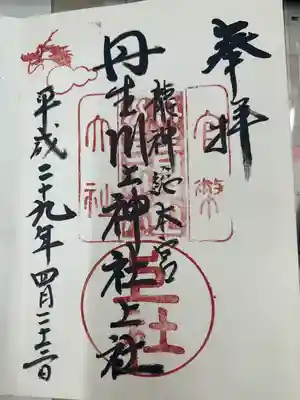 奉拝
官幣
大社
龍神総本宮
丹生川上神社上社
上社
平成二十九年四月二十二日